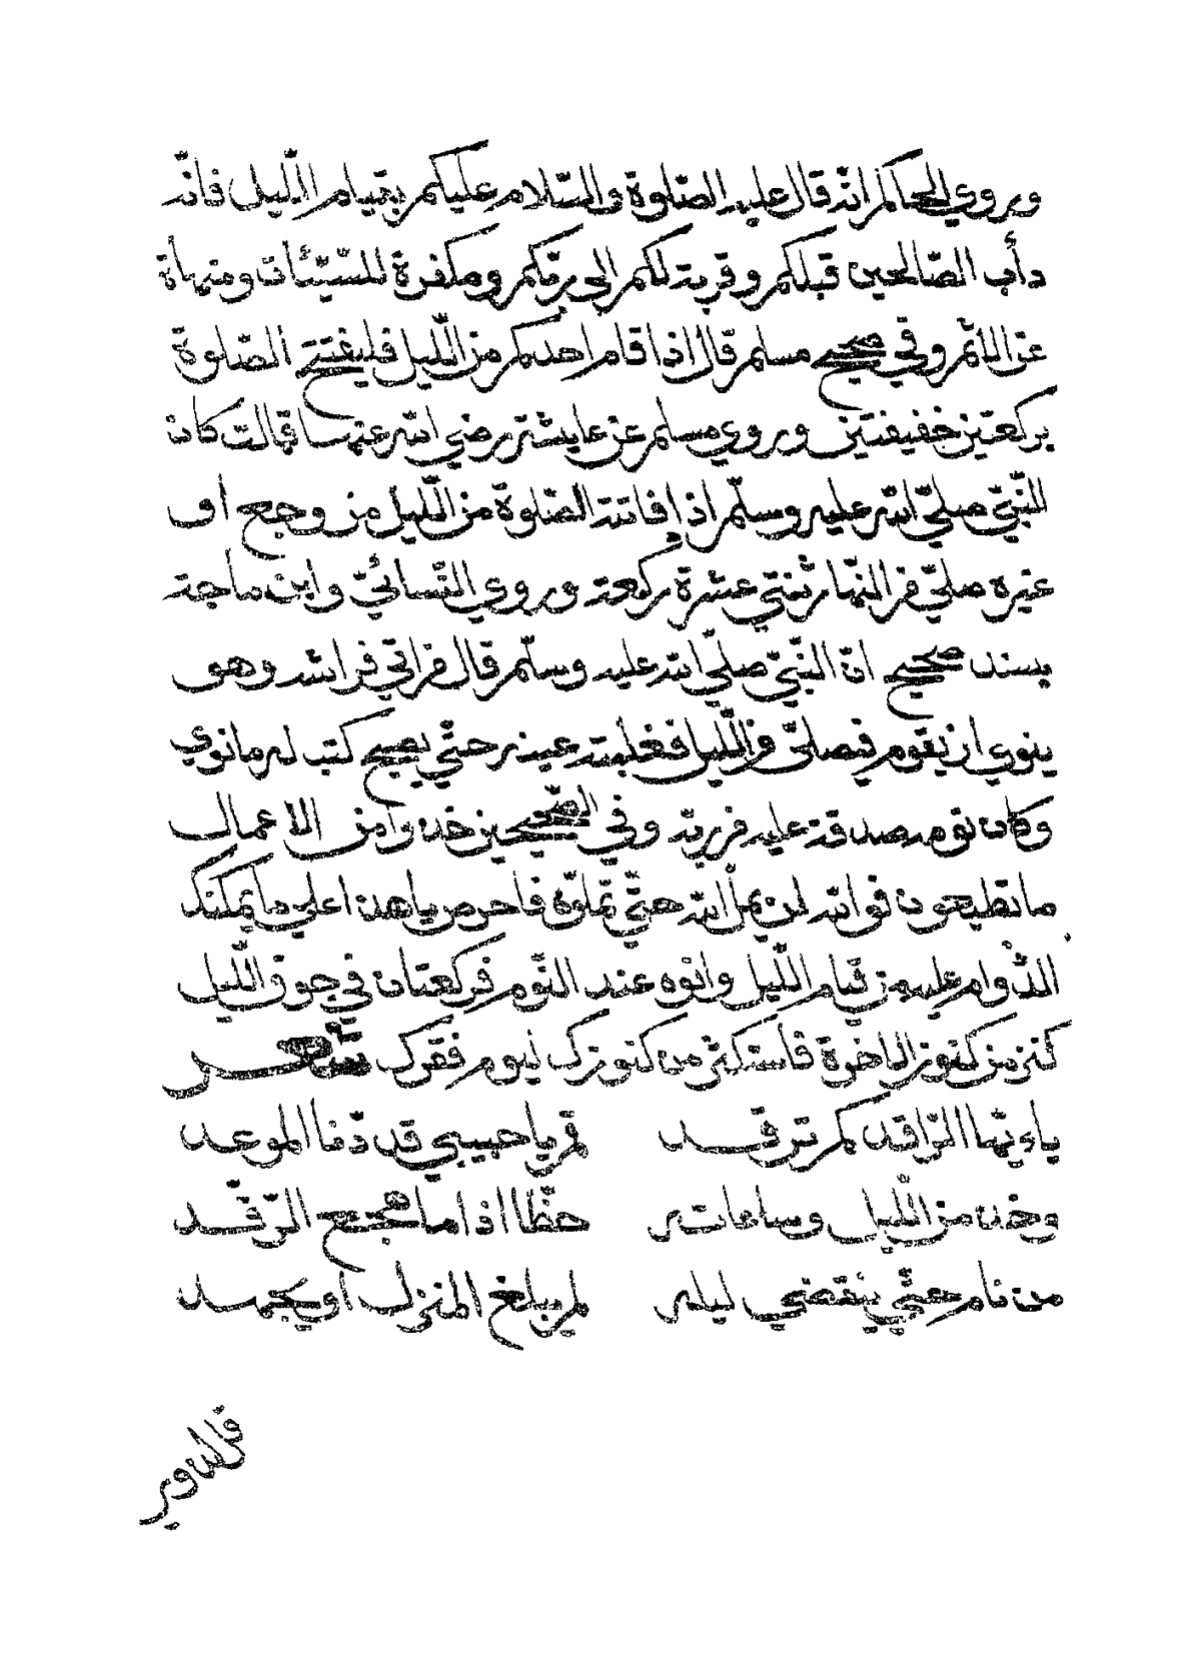 وروي الحاكم انّه قال عليه الصّلوة والسّلام عليكم بقيام اللّيل فانّه
دأب الصّالحين قبلكم وقربة لكم الى ربّكم ومكفرة للسّيّئات ومنهاة
عن الاثم وفي صحيح مسلم قال اذا قام احدكم من اللّيل فليفتتح الصّلوة
بركعتين خفيفتين وروي مسلم عن عايشة رضي الله عنها قالت كان
النّبيّ صلّي الله عليه وسلّم اذا فاتته الصّلوة من اللّيل من وجع أو
غيره صلّي من النّهار ثنتي عشرة ركعة وروي النّسائيّ وابن ماجة
بسند صحيح انّ النّبيّ صلّي الله عليه وسلّم قال من اتي فراشه وهو
ينوي ان يقوم فيصلّى من اللّيل فغلبته عينه حتّي يصبح كتب له مانوي
وكان نومه صدقة عليه من ربّه وفي الصّحيحين خذوا من الاعمال
ما تطيقون فوالله لن يملّ الله حتّي تملّوا فاحرص ياهذا علي ما يمكنك
الدّوام عليه من قيام اللّيل وانوه عند النّوم فركعتان في جوف اللّيل
كنز من كنوز الاخرة فاستكثر من كنوزك ليوم فقرك شعر
ياءيّها الرّاقد كم ترقد قم ياحبيبي قد دنا الموعد
وخذ من اللّيل وساعاته حظّا اذا ما هجع الرّقّد
من نام حتّي ينقضي ليله لم يبلغ المنزل او يجهد